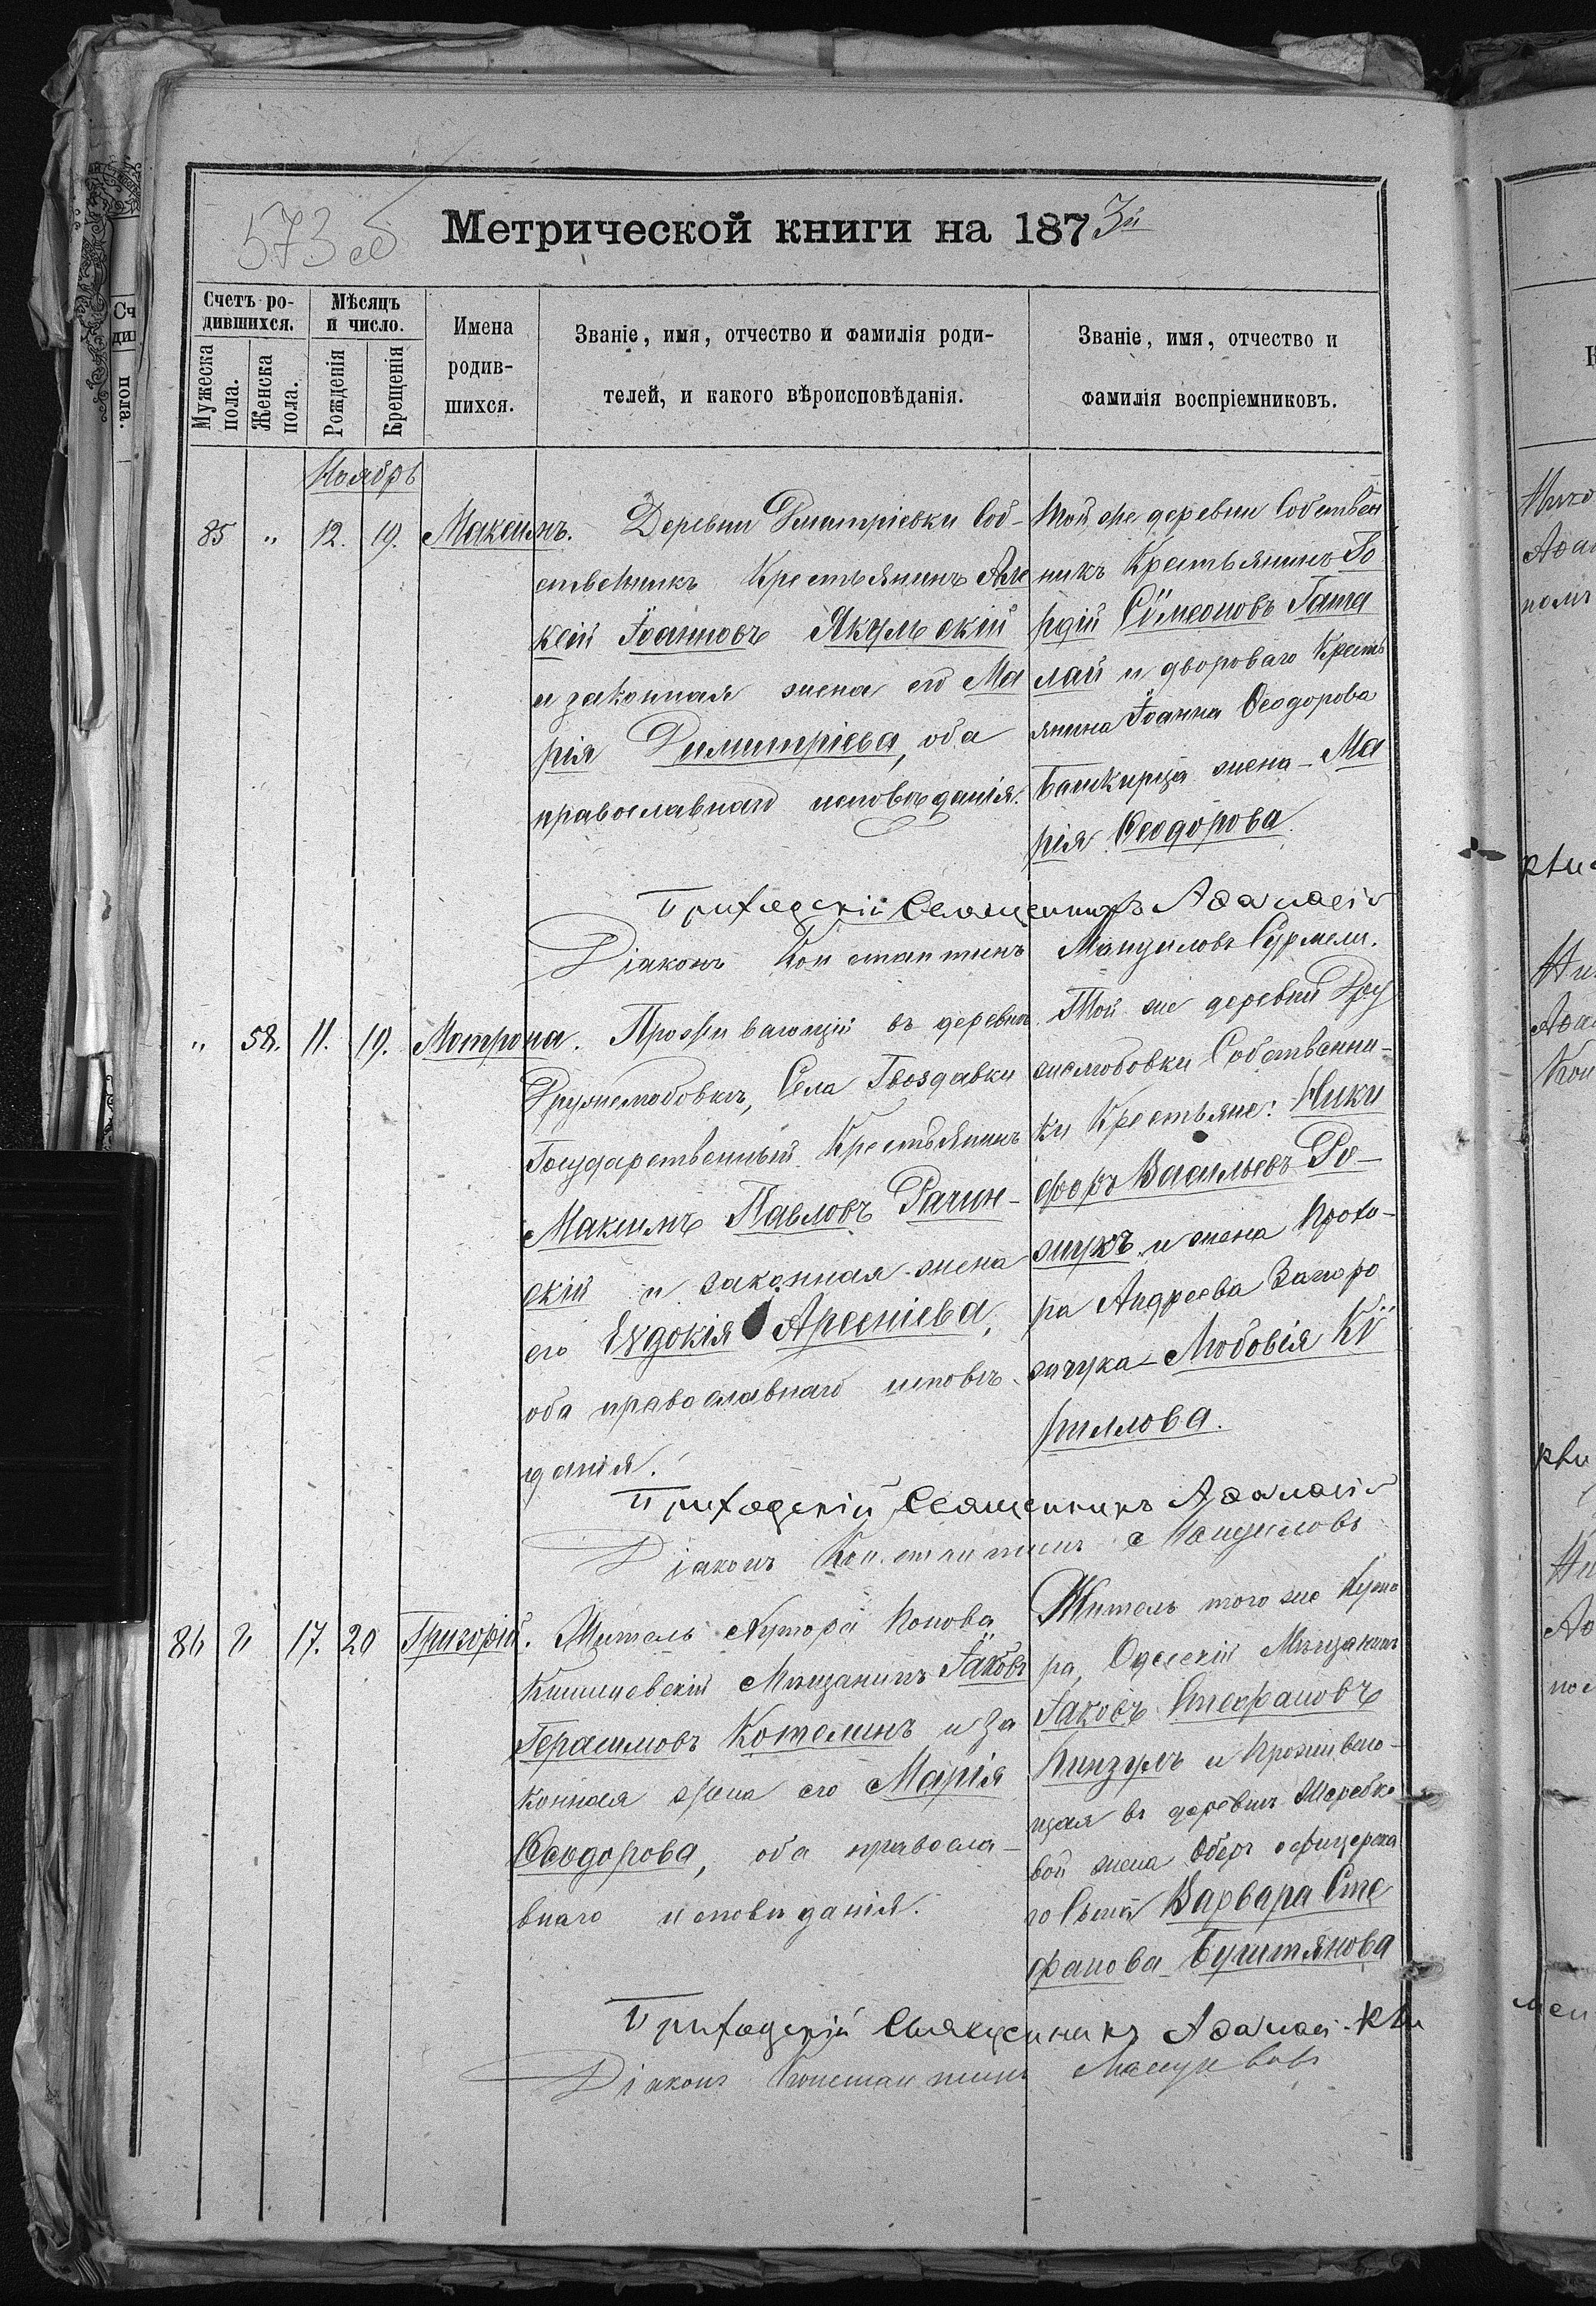 573 об
Метрической книги на 1873й
Счетъ ро-
дившихся.
Мѣсяцъ
и число.
Мужеска
пола.
Женска
пола.
Рожденія
Крещенія
Имена
родив-
шихся.
Званіе, имя, отчество и фамилія роди-
телей, и какого вѣроисповѣданія.
Званіе, имя, отчество и
фамилія воспріемниковъ.
Ноябрь
85 " 12. 19. Максимъ.
Деревни Дмитріевки Соб-
ственникъ Крестьянинъ Але
ксій Іоанновъ Якульскій
и законная жена его Ма
рія Димитріева, оба
православнаго исповѣданія.
Той же деревни Собствен
никъ Крестьянинъ Го
рдій Сѵмеоновъ Гата
лай и двороваго Кресть
янина Іоанна Ѳеодорова
Башкирца жена - Ма
рія Ѳеодорова.
Приходскій Священникъ Аѳанасій
Діаконъ Константинъ Манзиловъ Сурмели.
" 58. 11. 19. Мотрона.
Проживающій въ деревнѣ
Дружелюбовкѣ, Села Гвоздавки
Государственный Крестьянинъ
Максимъ Павловъ Рачин-
скій и законная жена
его Евдокія Арсеніева,
оба православнаго исповѣ-
данія.
Той же деревни Дру
желюбовки Собственни-
ки Крестьяне: Ники
форъ Васильевъ Ро-
жукъ и жена Прохо-
ра Андреева Загоро
дчука - Любовія Кѵ
риллова.
Приходскій Священникъ Аѳанасій
Діаконъ Константинъ Манзиловъ
86 " 17. 20 Григорій.
Житель Хутора Попова
Кишиневскій Мѣщанинъ Іаковъ
Герасимовъ Котелинъ и за
конная жена его Марія
Ѳеодорова, оба правосла-
внаго исповѣданія.
Житель того же Хуто
ра, Одесскій Мѣщанинъ
Іаковъ Стефановъ
Кинзулъ и Проживаю-
щая въ деревнѣ Жеребко
вой жена Оберъ офицерска
го Сына Варвара Сте
фанова Буштянова
Приходскій Священникъ Аѳанасій
Діаконъ Константинъ